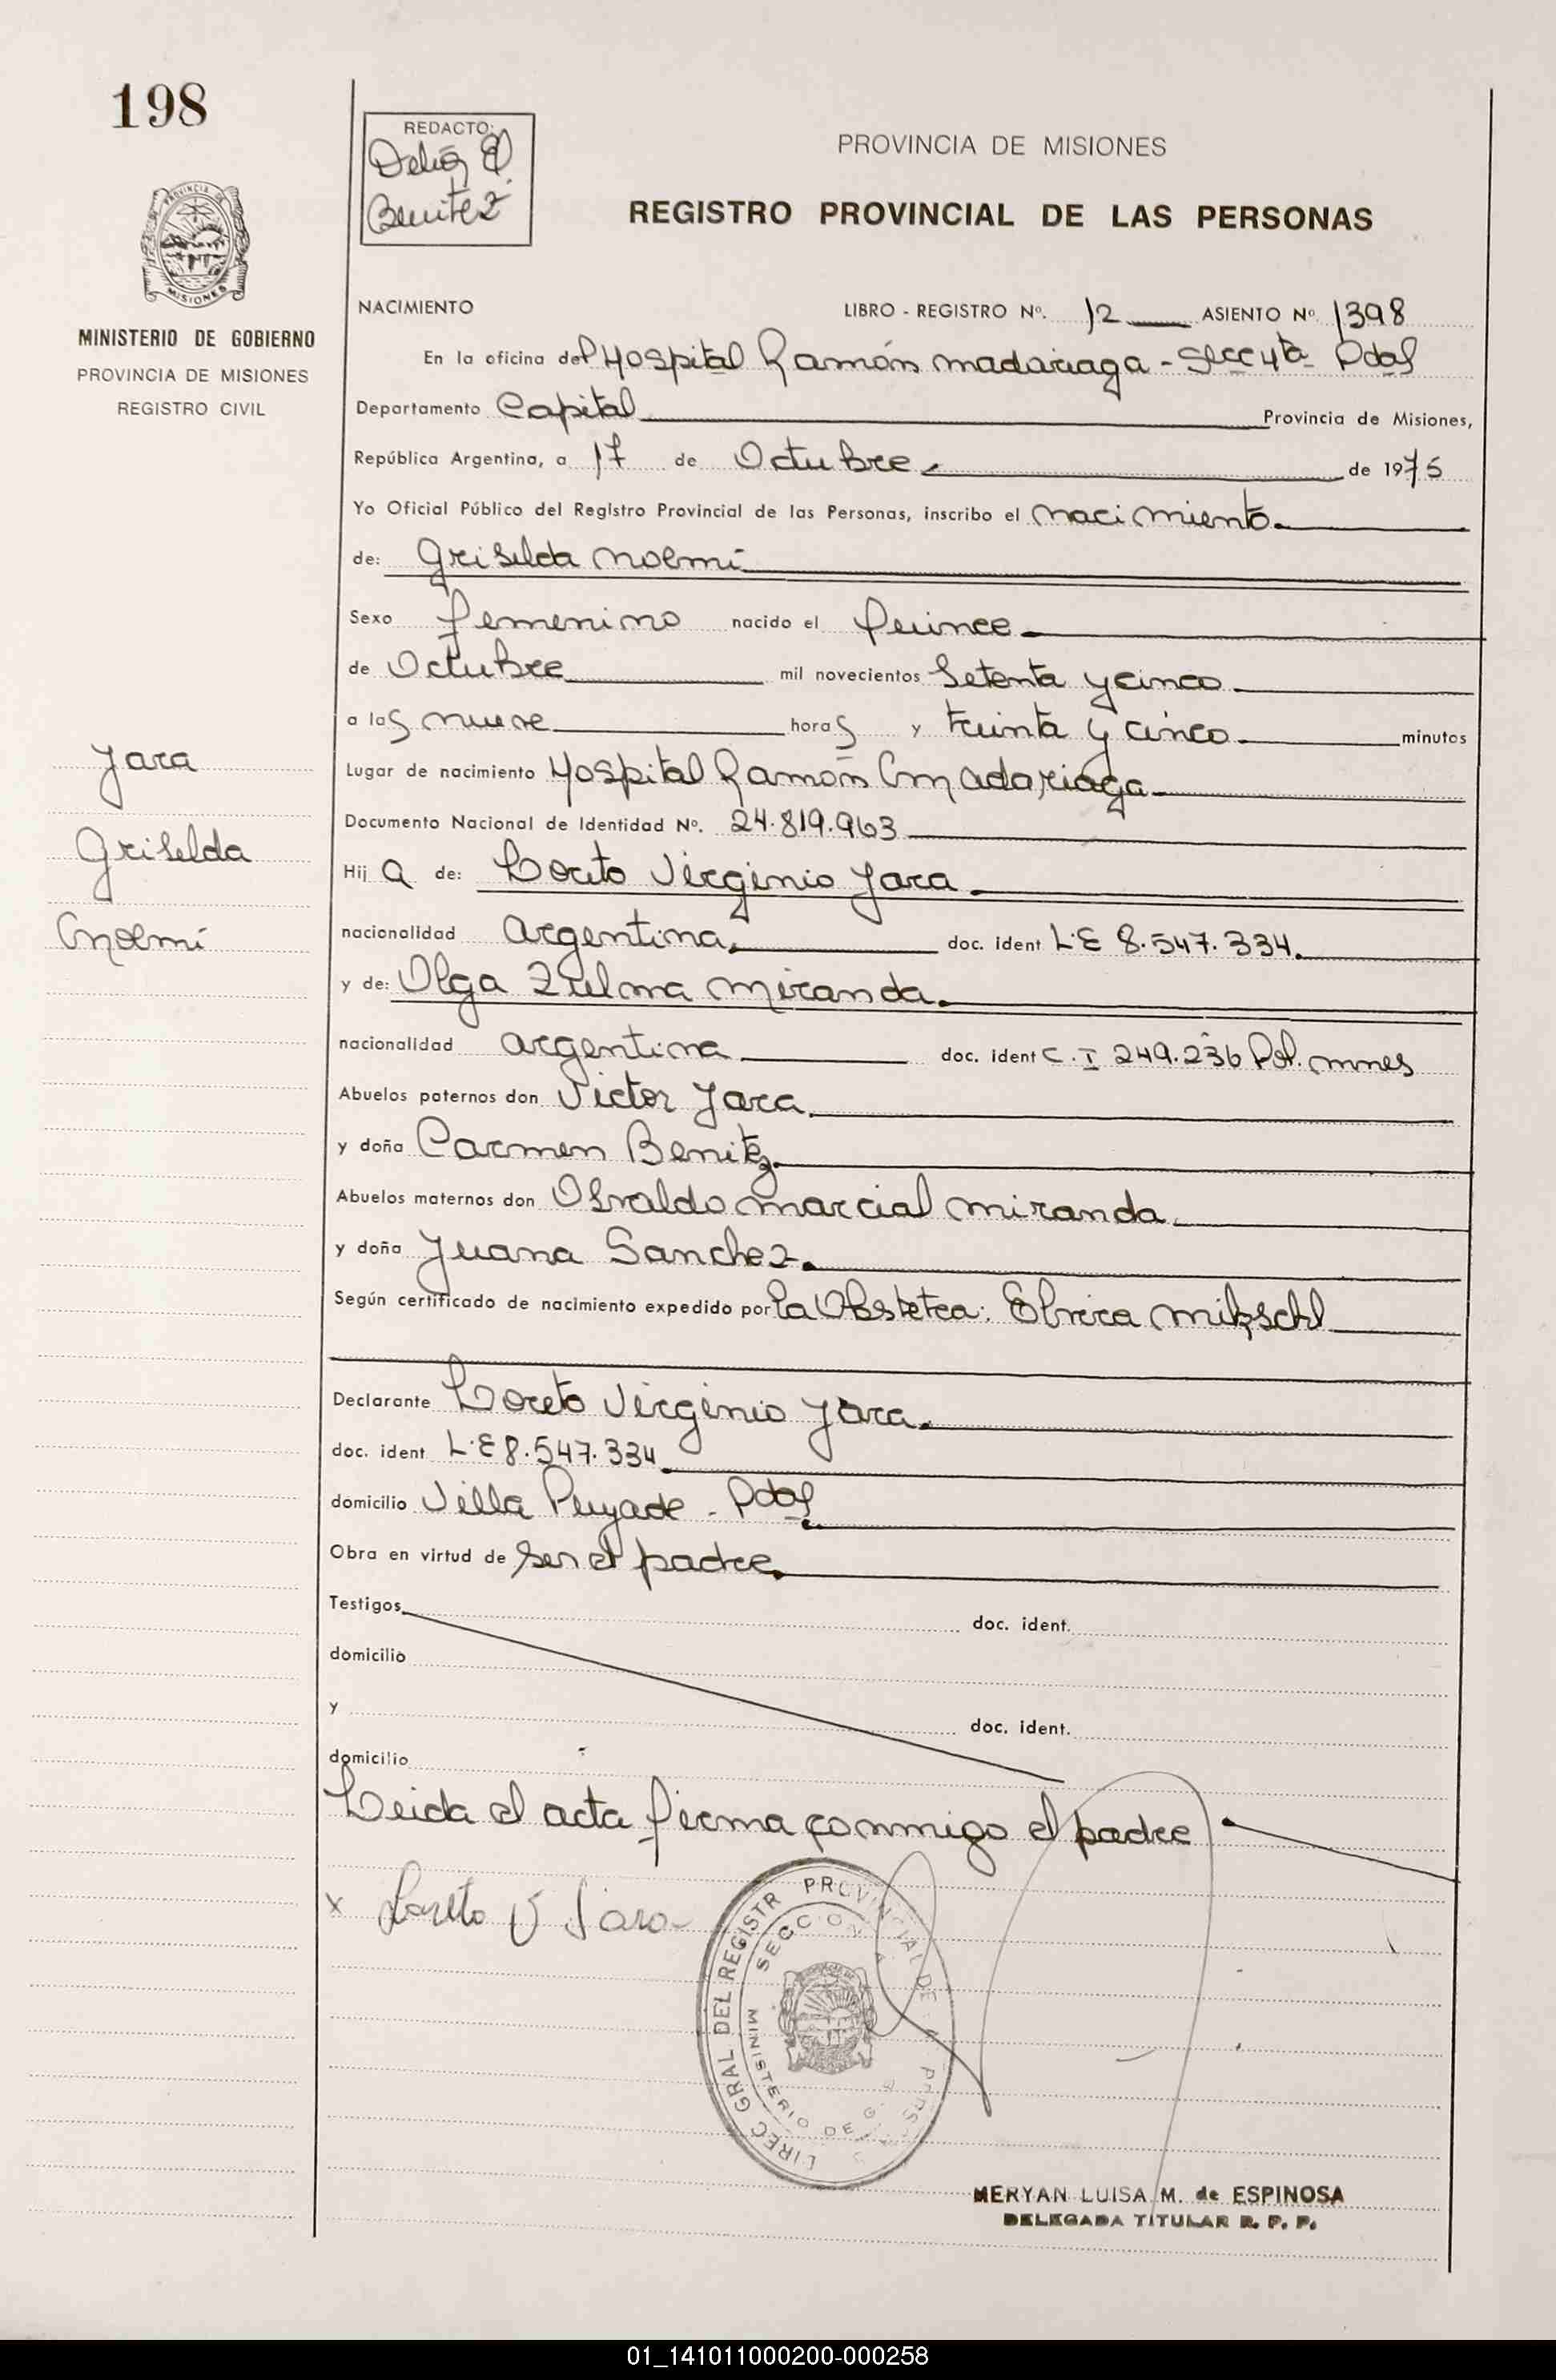 198
REDACTO:
Delia E.
Benitez
PROVINCIA DE MISIONES
REGISTRO PROVINCIAL DE LAS PERSONAS
MISIONES
MINISTERIO DE GOBIERNO
PROVINCIA DE MISIONES
REGISTRO CIVIL
NACIMIENTO LIBRO - REGISTRO Nº. 12 ASIENTO Nº. 1398
En la oficina del Hospital Ramón Madariaga - Secc 4ta Pdas
Departamento Capital Provincia de Misiones,
República Argentina, a 17 de Octubre de 1975
Yo Oficial Público del Registro Provincial de las Personas, inscribo el nacimiento
de: Griselda Noemí
Sexo femenino nacido el Quince
de Octubre mil novecientos Setenta y cinco
a las nueve horas y treinta y cinco minutos
Lugar de nacimiento Hospital Ramón Madariaga
Documento Nacional de Identidad Nº. 24.819.963
Hija de: Loreto Virginio Jara
nacionalidad argentina doc. ident L.E 8.547.334.
y de: Olga Zulma Miranda
nacionalidad argentina doc. ident C.I 249.236 Pol. Mnes
Abuelos paternos don Victor Jara
y doña Carmen Benitez
Abuelos maternos don Osvaldo Marcial Miranda
y doña Juana Sanchez
Según certificado de nacimiento expedido por la Obstetra:
Declarante Loreto Virginio Jara
doc. ident L.E 8.547.334
domicilio Villa Puyade - Pdas
Obra en virtud de ser el padre
Testigos doc. ident.
domicilio
y doc. ident.
domicilio
Leida el acta firma conmigo el padre
x Loreto V Jara
Jara
Griselda
Noemí
DIREC GRAL DEL REGISTR PROVINCIAL DE
SECCION
MINISTERIO DE G.
MERYAN LUISA M. de ESPINOSA
DELEGADA TITULAR R. P. P.
01_141011000200-000258